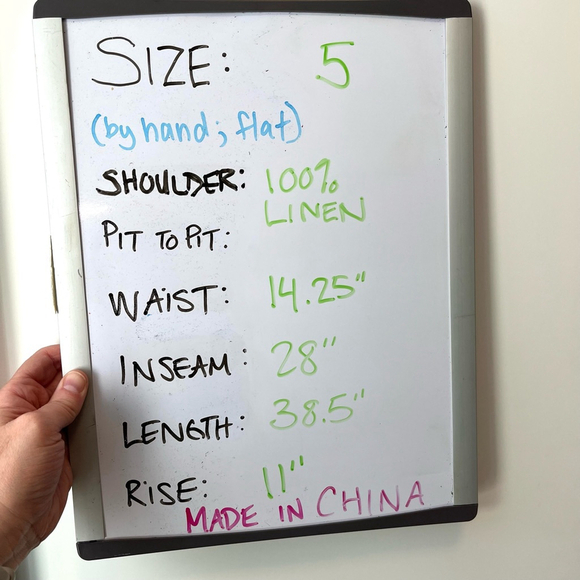 SIZE: 5
(by hand; flat)
SHOULDER: 100%
LINEN
PIT TO PIT:
WAIST: 14.25"
INSEAM: 28"
LENGTH: 38.5"
RISE: 11"
MADE IN CHINA